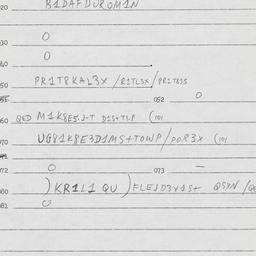 020 B1DAFDUROM1N
030 O
O
040
050 PR1T8KAL3X /R1TL3X/PR1T83S
052 O
060 QED M1K8E5J-T D1S+TLP (101
070 UG81K8E3D1MS+TOWP/POR3X (101
072 O 073 —
080 )KR1L1 QU )FLEJD3V1S+ QSYN /Q
081 O